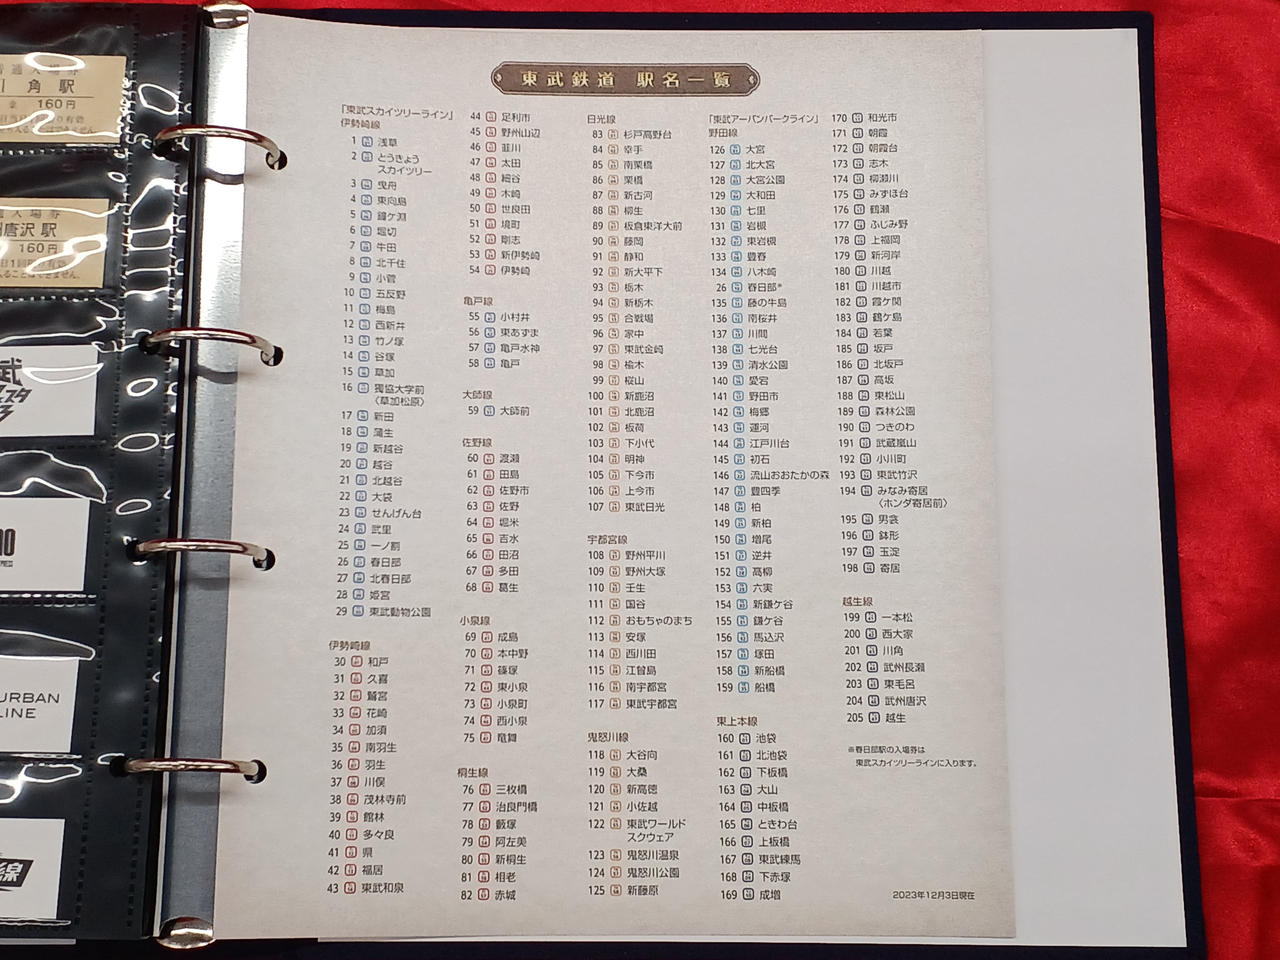 東武鉄道 駅名一覧
「東武スカイツリーライン」
伊勢崎線
1 浅草
2 とうきょう
スカイツリー
3 曳舟
4 東向島
5 鐘ケ淵
6 堀切
7 牛田
8 北千住
9 小菅
10 五反野
11 梅島
12 西新井
13 竹ノ塚
14 谷塚
15 草加
16 獨協大学前
〈草加松原〉
17 新田
18 蒲生
19 新越谷
20 越谷
21 北越谷
22 大袋
23 せんげん台
24 武里
25 一ノ割
26 春日部
27 北春日部
28 姫宮
29 東武動物公園
伊勢崎線
30 和戸
31 久喜
32 鷲宮
33 花崎
34 加須
35 南羽生
36 羽生
37 川俣
38 茂林寺前
39 館林
40 多々良
41 県
42 福居
43 東武和泉
44 足利市
45 野州山辺
46 韮川
47 太田
48 細谷
49 木崎
50 世良田
51 境町
52 剛志
53 新伊勢崎
54 伊勢崎
亀戸線
55 小村井
56 東あずま
57 亀戸水神
58 亀戸
大師線
59 大師前
佐野線
60 渡瀬
61 田島
62 佐野市
63 佐野
64 堀米
65 吉水
66 田沼
67 多田
68 葛生
小泉線
69 成島
70 本中野
71 篠塚
72 東小泉
73 小泉町
74 西小泉
75 竜舞
桐生線
76 三枚橋
77 治良門橋
78 藪塚
79 阿左美
80 新桐生
81 相老
82 赤城
日光線
83 杉戸高野台
84 幸手
85 南栗橋
86 栗橋
87 新古河
88 柳生
89 板倉東洋大前
90 藤岡
91 静和
92 新大平下
93 栃木
94 新栃木
95 合戦場
96 家中
97 東武金崎
98 楡木
99 樅山
100 新鹿沼
101 北鹿沼
102 板荷
103 下小代
104 明神
105 下今市
106 上今市
107 東武日光
宇都宮線
108 野州平川
109 野州大塚
110 壬生
111 国谷
112 おもちゃのまち
113 安塚
114 西川田
115 江曽島
116 南宇都宮
117 東武宇都宮
鬼怒川線
118 大谷向
119 大桑
120 新高徳
121 小佐越
122 東武ワールド
スクウェア
123 鬼怒川温泉
124 鬼怒川公園
125 新藤原
「東武アーバンパークライン」
野田線
126 大宮
127 北大宮
128 大宮公園
129 大和田
130 七里
131 岩槻
132 東岩槻
133 豊春
134 八木崎
26 春日部※
135 藤の牛島
136 南桜井
137 川間
138 七光台
139 清水公園
140 愛宕
141 野田市
142 梅郷
143 運河
144 江戸川台
145 初石
146 流山おおたかの森
147 豊四季
148 柏
149 新柏
150 増尾
151 逆井
152 高柳
153 六実
154 新鎌ケ谷
155 鎌ケ谷
156 馬込沢
157 塚田
158 新船橋
159 船橋
東上本線
160 池袋
161 北池袋
162 下板橋
163 大山
164 中板橋
165 ときわ台
166 上板橋
167 東武練馬
168 下赤塚
169 成増
170 和光市
171 朝霞
172 朝霞台
173 志木
174 柳瀬川
175 みずほ台
176 鶴瀬
177 ふじみ野
178 上福岡
179 新河岸
180 川越
181 川越市
182 霞ケ関
183 鶴ケ島
184 若葉
185 坂戸
186 北坂戸
187 高坂
188 東松山
189 森林公園
190 つきのわ
191 武蔵嵐山
192 小川町
193 東武竹沢
194 みなみ寄居
〈ホンダ寄居前〉
195 男衾
196 鉢形
197 玉淀
198 寄居
越生線
199 一本松
200 西大家
201 川角
202 武州長瀬
203 東毛呂
204 武州唐沢
205 越生
※春日部駅の入場券は
東武スカイツリーラインに入ります。
2023年12月3日現在
普通入場券
川角駅
160円
唐沢駅
160円
URBAN
LINE